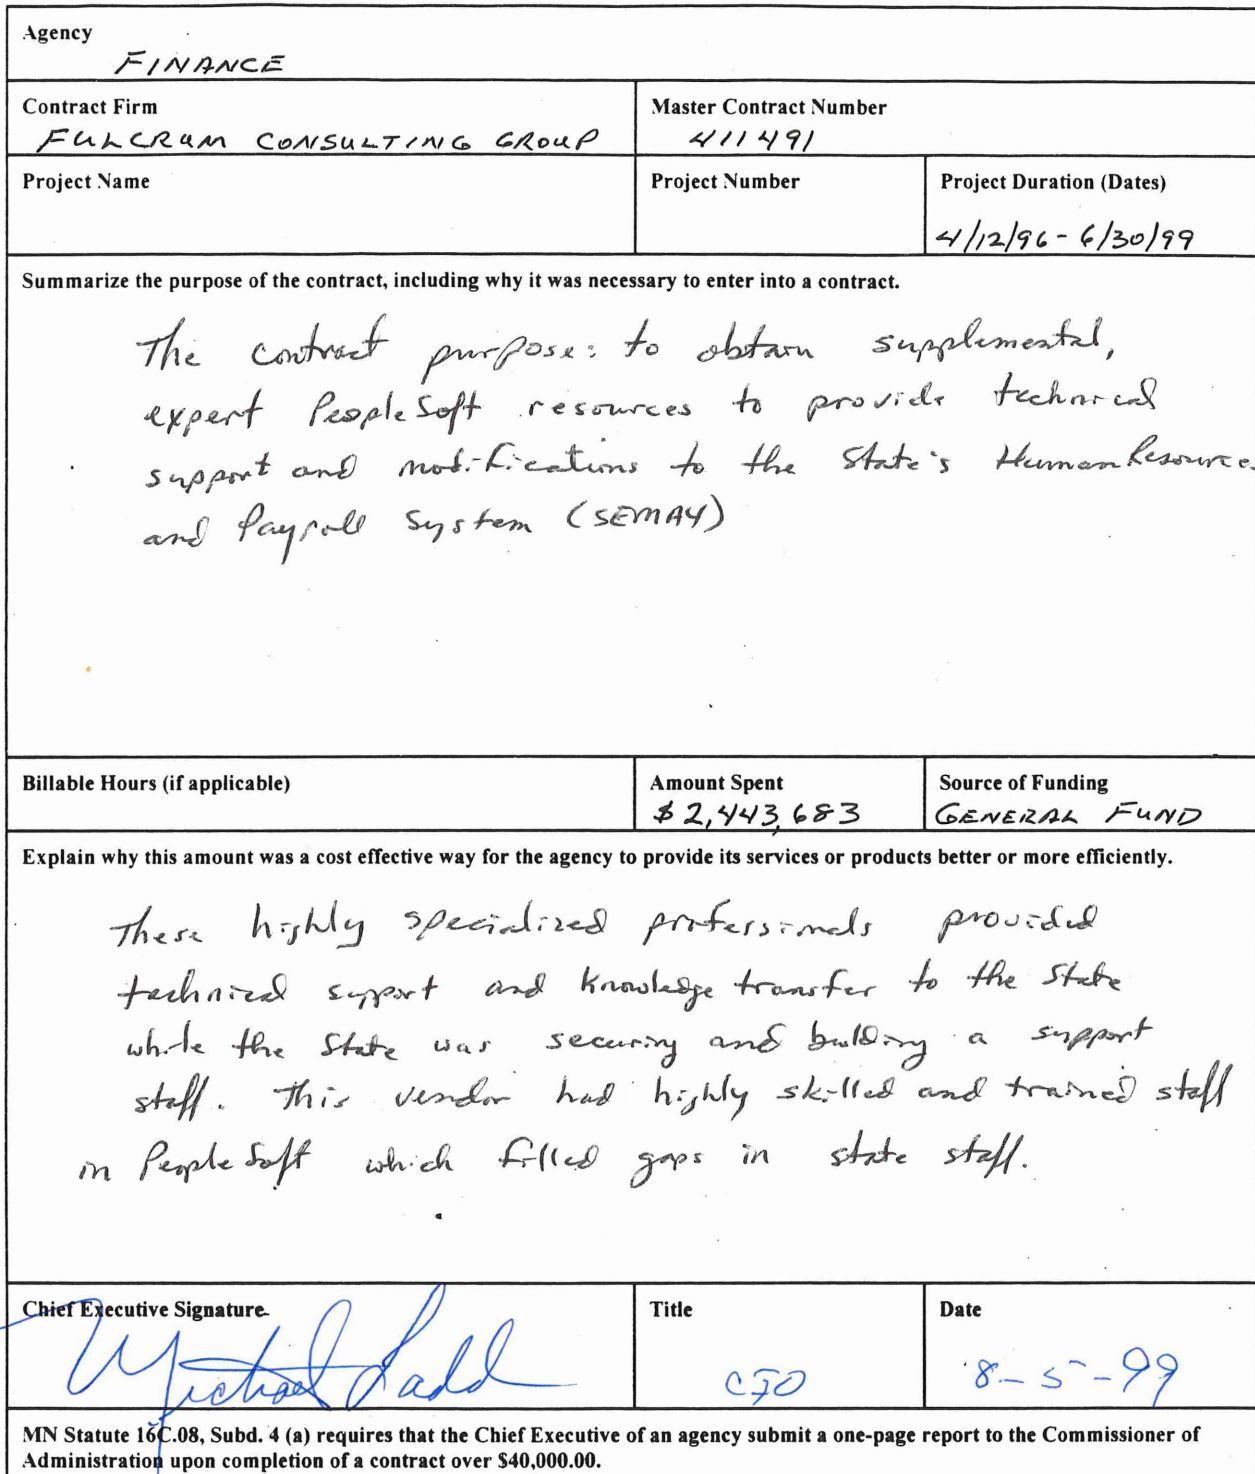 Agency
FINANCE
Contract Firm
FULCRUM CONSULTING GROUP
Master Contract Number
411491
Project Name
Project Number
Project Duration (Dates)
4/12/96 - 6/30/99
Summarize the purpose of the contract, including why it was necessary to enter into a contract.
The contract purpose: to obtain supplemental,
expert PeopleSoft resources to provide technical
support and modifications to the State's Human Resources
and Payroll System (SEMA4)
Billable Hours (if applicable)
Amount Spent
$2,443,683
Source of Funding
GENERAL FUND
Explain why this amount was a cost effective way for the agency to provide its services or products better or more efficiently.
These highly specialized professionals provided
technical support and knowledge transfer to the State
while the State was securing and building a support
staff. This vendor had highly skilled and trained staff
in PeopleSoft which filled gaps in state staff.
Chief Executive Signature
Michael Ladd
Title
CFO
Date
8-5-99
MN Statute 16C.08, Subd. 4 (a) requires that the Chief Executive of an agency submit a one-page report to the Commissioner of
Administration upon completion of a contract over $40,000.00.